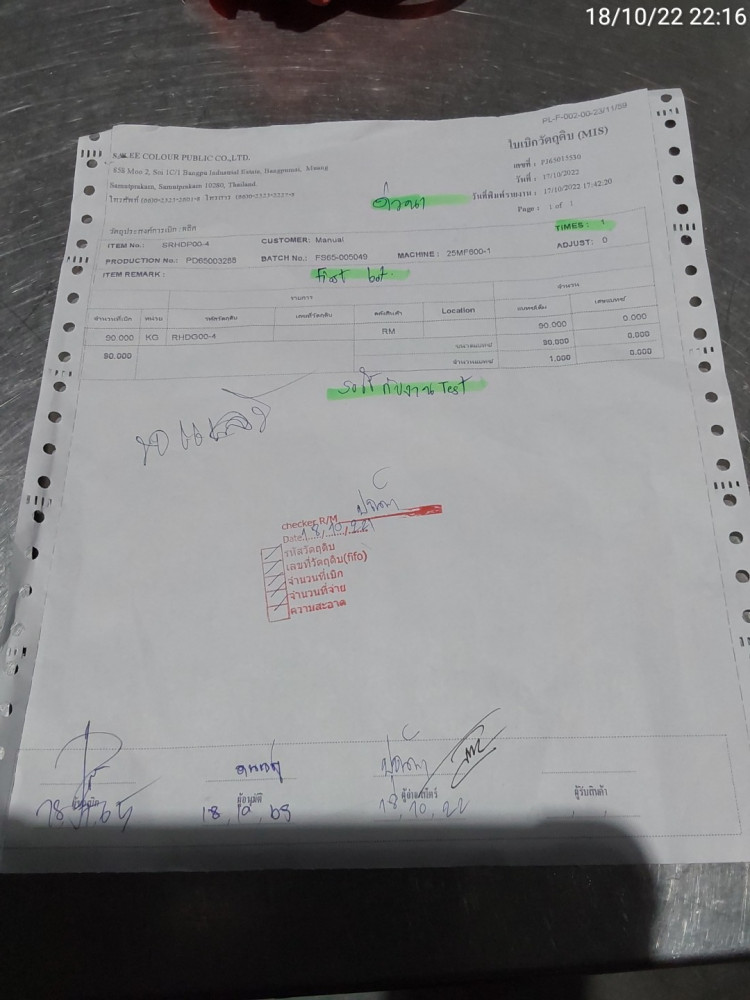 18/10/22 22:16
PL-F-002-00-23/11/59
ใบเบิกวัตถุดิบ (MIS)
SALEE COLOUR PUBLIC CO.,LTD.
858 Moo 2, Soi 1C/1 Bangpu Industrial Estate, Bangpumai, Muang
Samutprakarn, Samutprakarn 10280, Thailand.
เลขที่ :
วันที่ : 17/10/2022
วันที่พิมพ์รายงาน : 17/10/2022 17:42:20
Page : 1 of 1
วัตถุประสงค์การเบิก : ผลิต
TIMES : 1
ITEM No.: SRHDP00-4 CUSTOMER: Manual
ADJUST: 0
PRODUCTION No.: PD65003288 BATCH No.: FS65-005049 MACHINE : 25MF600-1
ITEM REMARK :
First bot
รายการ จำนวน
จำนวนที่เบิก หน่วย รหัสวัตถุดิบ เลขที่วัตถุดิบ คลังสินค้า Location แบทช์เต็ม เศษแบทช์
90.000 KG RHDG00-4 RM 90.000 0.000
90.000 ขนาดแบทช์ 90.000 0.000
จำนวนแบทช์ 1.000 0.000
รอใช้กับงาน Test
checker R/M
Date 18/10/22
รหัสวัตถุดิบ
เลขที่วัตถุดิบ(fifo)
จำนวนที่เบิก
จำนวนที่จ่าย
ความสะอาด
ผู้อนุมัติ ผู้รับสินค้า
18 10 65 18 10 22